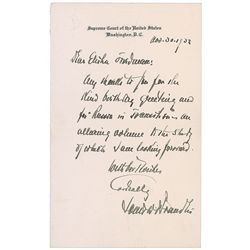 Supreme Court of the United States
Washington, D.C.
Nov. 20, 1932
Dear Elisha Friedman:
My thanks to you for the
kind birthday greeting and
for Russia in Transition - an
alluring volume to the study
of which I am looking forward.
With best wishes
Cordially
Louis D. Brandeis